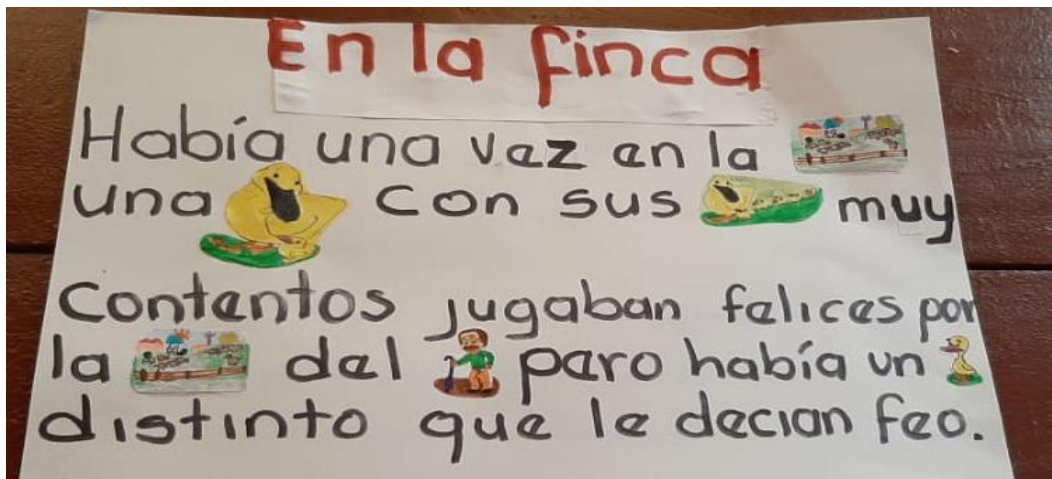 En la finca
Había una vez en la
una con sus muy
Contentos jugaban felices por
la del pero había un
distinto que le decian feo.